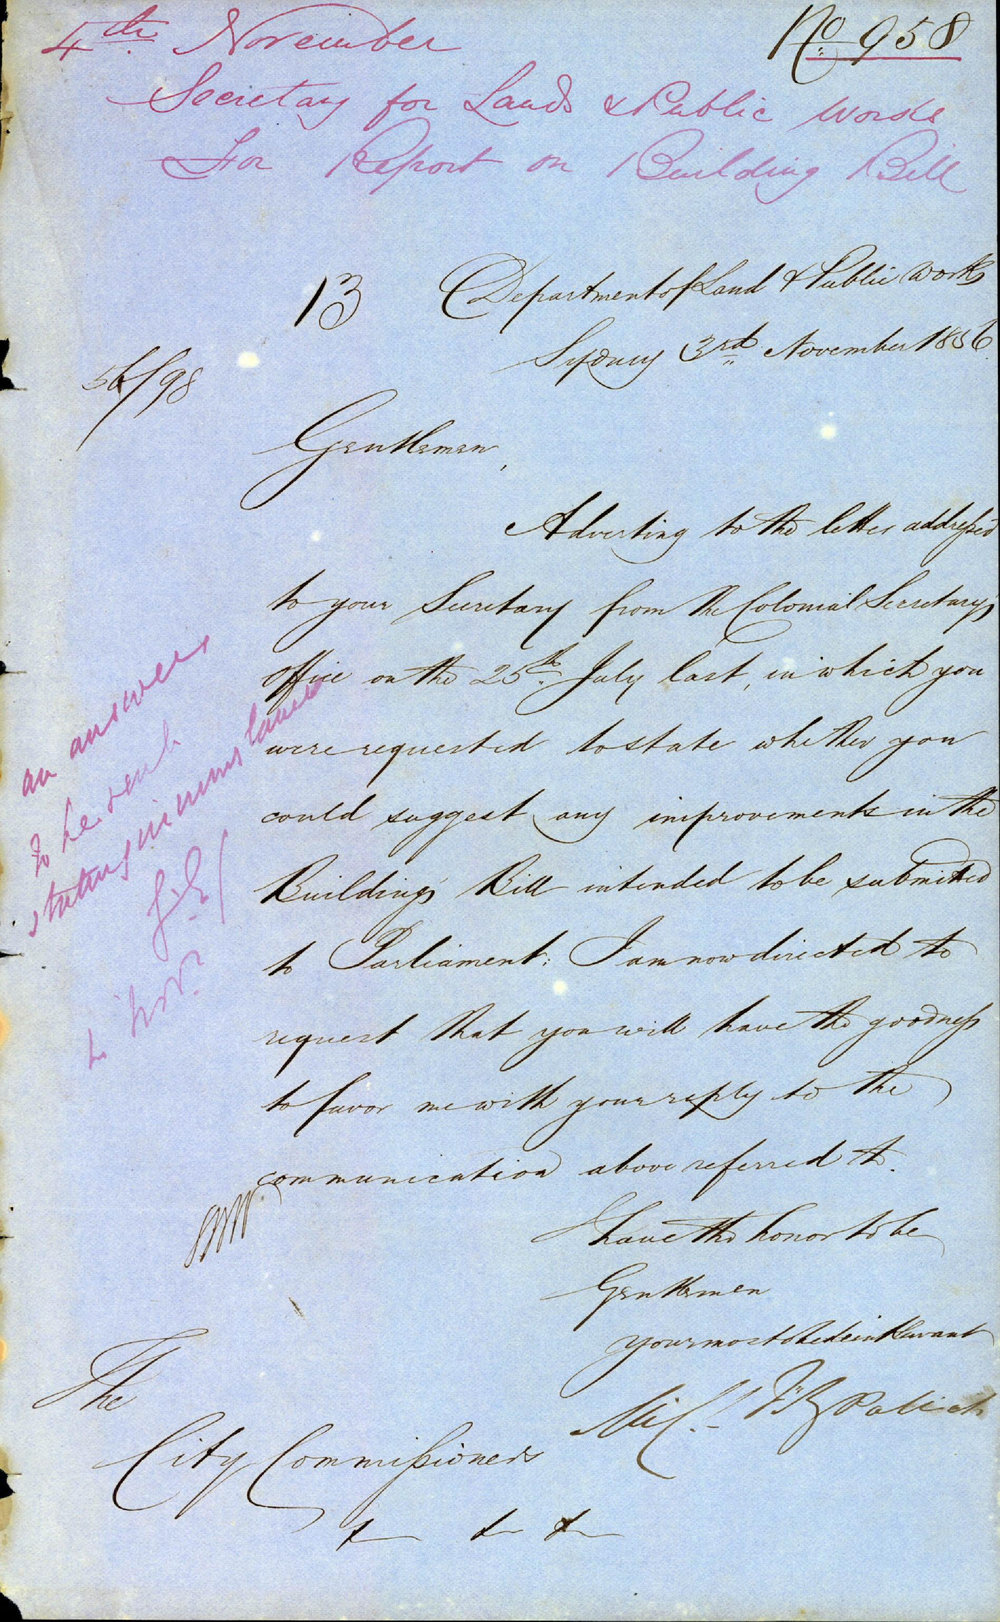 4th November
No 958
Secretary for Lands & Public Works
For Report on Building Bill
13
Department of Land & Public Works
Sydney 3rd November 1856
56/98
Gentlemen,
Adverting to the letter addressed
to your Secretary from the Colonial Secretary's
Office on the 25th July last, in which you
were requested to state whether you
could suggest any improvements in the
Buildings Bill intended to be submitted
to Parliament: I am now directed to
request that you will have the goodness
to favor me with your reply to the
communication above referred to.
I have the honor to be
Gentlemen
your most obedient Servant
Micl. FitzPatrick
The
City Commissioners
& & &
an answer
to be sent
stating circumstances
4 Nov.